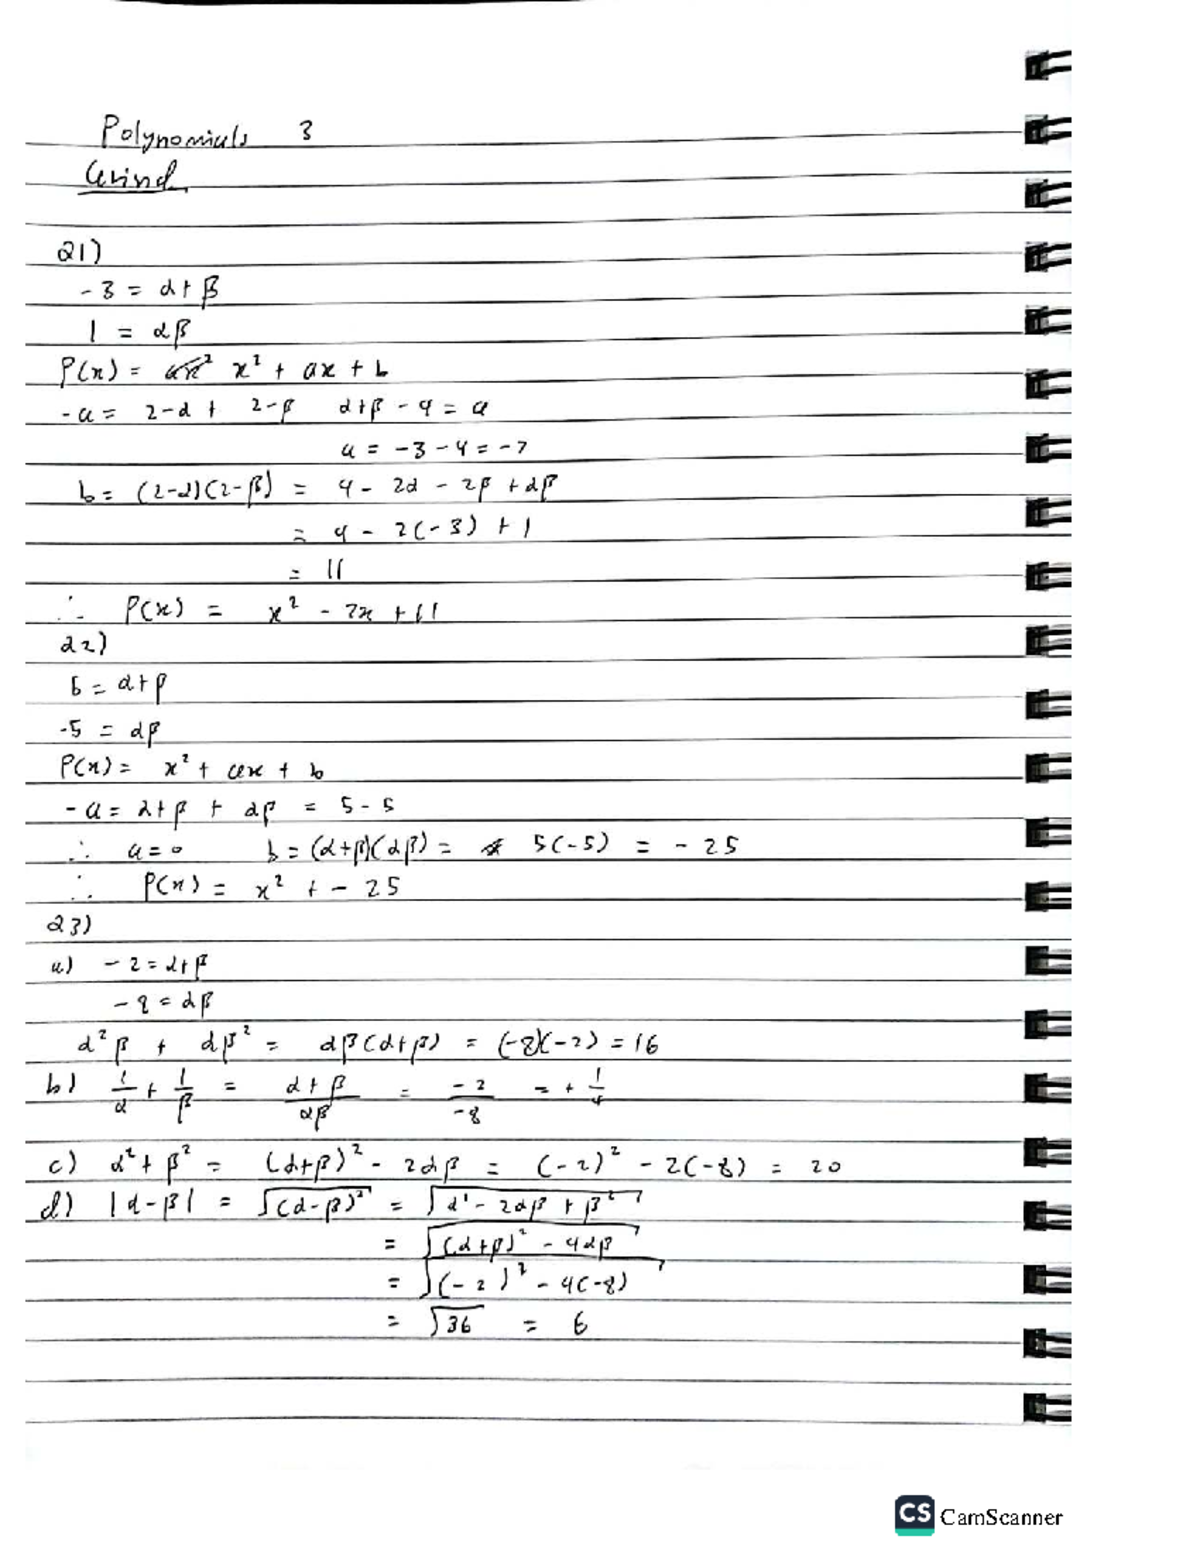 Polynomials 3
Grind
Q1)
-3 = α+β
1 = αβ
P(x) = x² + ax + b
-a = 2-α + 2-β α+β-4 = a
a = -3-4 = -7
b = (2-α)(2-β) = 4 - 2α - 2β + αβ
= 4 - 2(-3) + 1
= 11
∴ P(x) = x² - 7x + 11
Q2)
5 = α+β
-5 = αβ
P(x) = x² + ax + b
-a = α+β + αβ = 5-5
∴ a=0 b = (α+β)(αβ) = 5(-5) = -25
∴ P(x) = x² + - 25
Q3)
a) -2 = α+β
-8 = αβ
α²β + αβ² = αβ(α+β) = (-8)(-2) = 16
b) 1/α + 1/β = α+β/αβ = -2/-8 = + 1/4
c) α² + β² = (α+β)² - 2αβ = (-2)² - 2(-8) = 20
d) |α-β| = √(α-β)² = √α² - 2αβ + β²
= √(α+β)² - 4αβ
= √(-2)² - 4(-8)
= √36 = 6
CS CamScanner